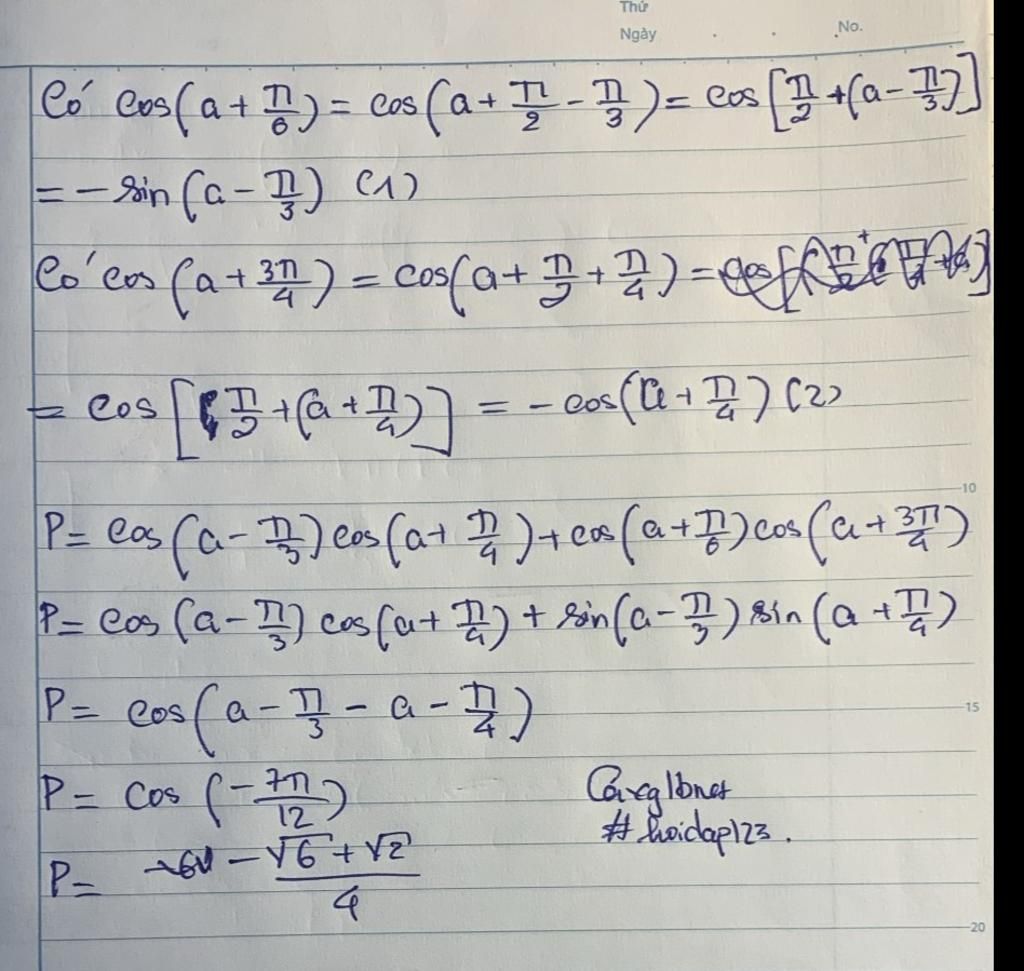 Thứ
Ngày . . .No.
Có cos(a + π/6) = cos(a + π/2 - π/3) = cos[π/2 + (a - π/3)]
= - sin(a - π/3) (1)
Có cos(a + 3π/4) = cos(a + π/2 + π/4) =
= cos[π/2 + (a + π/4)] = - cos(a + π/4) (2)
10
P = cos(a - π/3) cos(a + π/4) + cos(a + π/6) cos(a + 3π/4)
P = cos(a - π/3) cos(a + π/4) + sin(a - π/3) sin(a + π/4)
P = cos(a - π/3 - a - π/4)
15
P = cos(-7π/12)
P = (-√6 + √2)/4
#hoidap123.
20